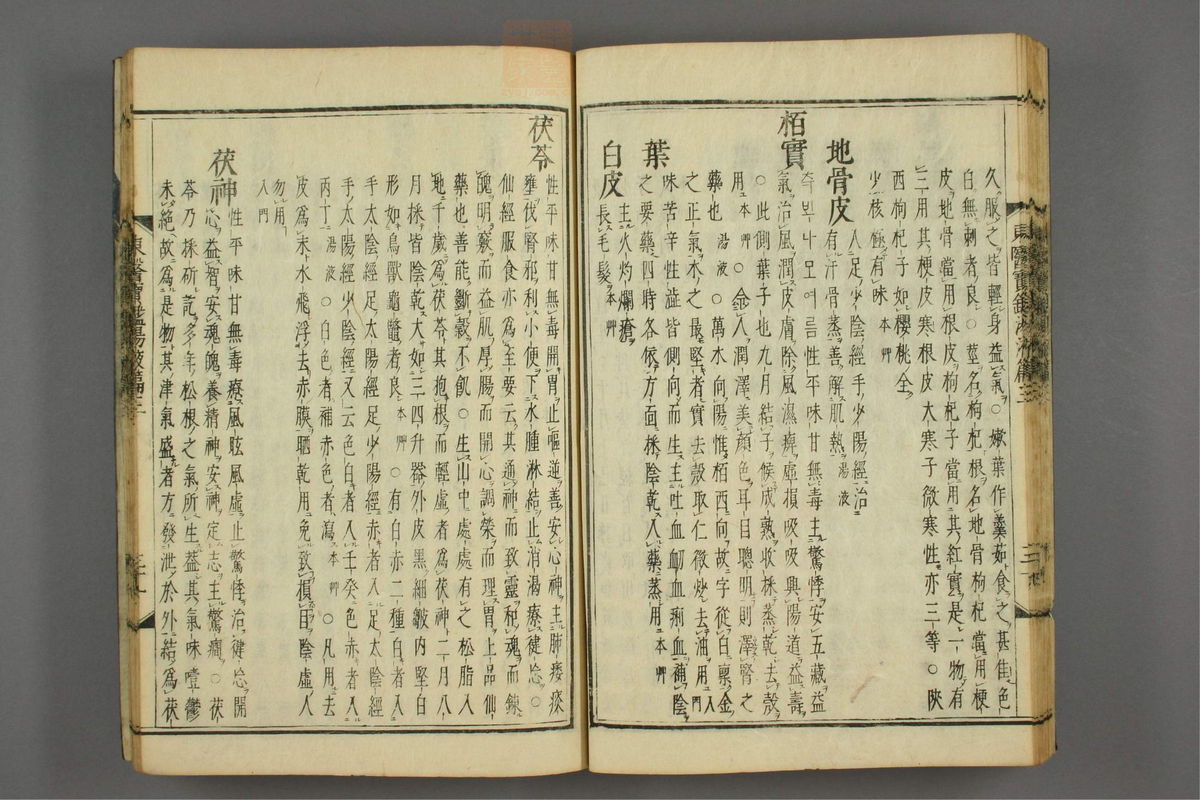 久服之皆輕身益氣○嫩葉作羹茹食之甚佳色
白無刺者良○莖名枸杞根名地骨枸杞當用梗
皮地骨當用根皮枸杞子當用其紅實是一物有
三用其梗皮寒根皮大寒子微寒性亦三等○陝
西枸杞子如櫻桃全
少核極有味 本艸
地骨皮 入足少陰經手少陽經治
有汗骨蒸善解肌熱 湯液
栢實 측빅나모여름性平味甘無毒主驚悸安五藏益
氣治風潤皮膚除風濕痺虛損吸吸興陽道益壽
○此側葉子也九月結子候成熟收採蒸乾去殼
用 本艸 ○金入潤澤美顏色耳目聰明則澤腎之
藥也 湯液 ○萬木向陽惟栢西向故字從白稟金
之正氣木之最堅者實去殼取仁微炒去油用 入門
葉 味苦辛性澁皆側向而生主吐血衂血痢血補陰
之要藥四時各依方面採陰乾入藥蒸用 本艸
白皮 主火灼爛瘡
長毛髮 本艸
茯苓 性平味甘無毒開胃止嘔逆善安心神主肺痿痰
壅伐腎邪利小便下水腫淋結止消渴療健忘○
仙經服食亦爲至要云其通神而致靈和魂而鍊
魄明竅而益肌厚腸而開心調榮而理胃上品仙
藥也善能斷穀不飢○生山中處處有之松脂入
地千歲爲茯苓其抱根而輕虛者爲茯神二月八
月採皆陰乾大如三四升器外皮黑細皺內堅白
形如鳥獸龜鼈者良 本艸 ○有白赤二種白者入
手太陰經足太陽經足少陽經赤者入足太陰經
手太陽經少陰經又云色白者入壬癸色赤者入
丙丁 湯液 ○白色者補赤色者瀉 本艸 ○凡用去
皮爲末水飛浮去赤膜晒乾用免致損目陰虛人
勿用
入門
茯神 性平味甘無毒療風眩風虛止驚悸治健忘開
心益智安魂魄養精神安神定志主驚癎○茯
苓乃採斫訖多年松根之氣所生蓋其氣味噎鬱
未絕故爲是物其津氣盛者方發泄於外結爲茯